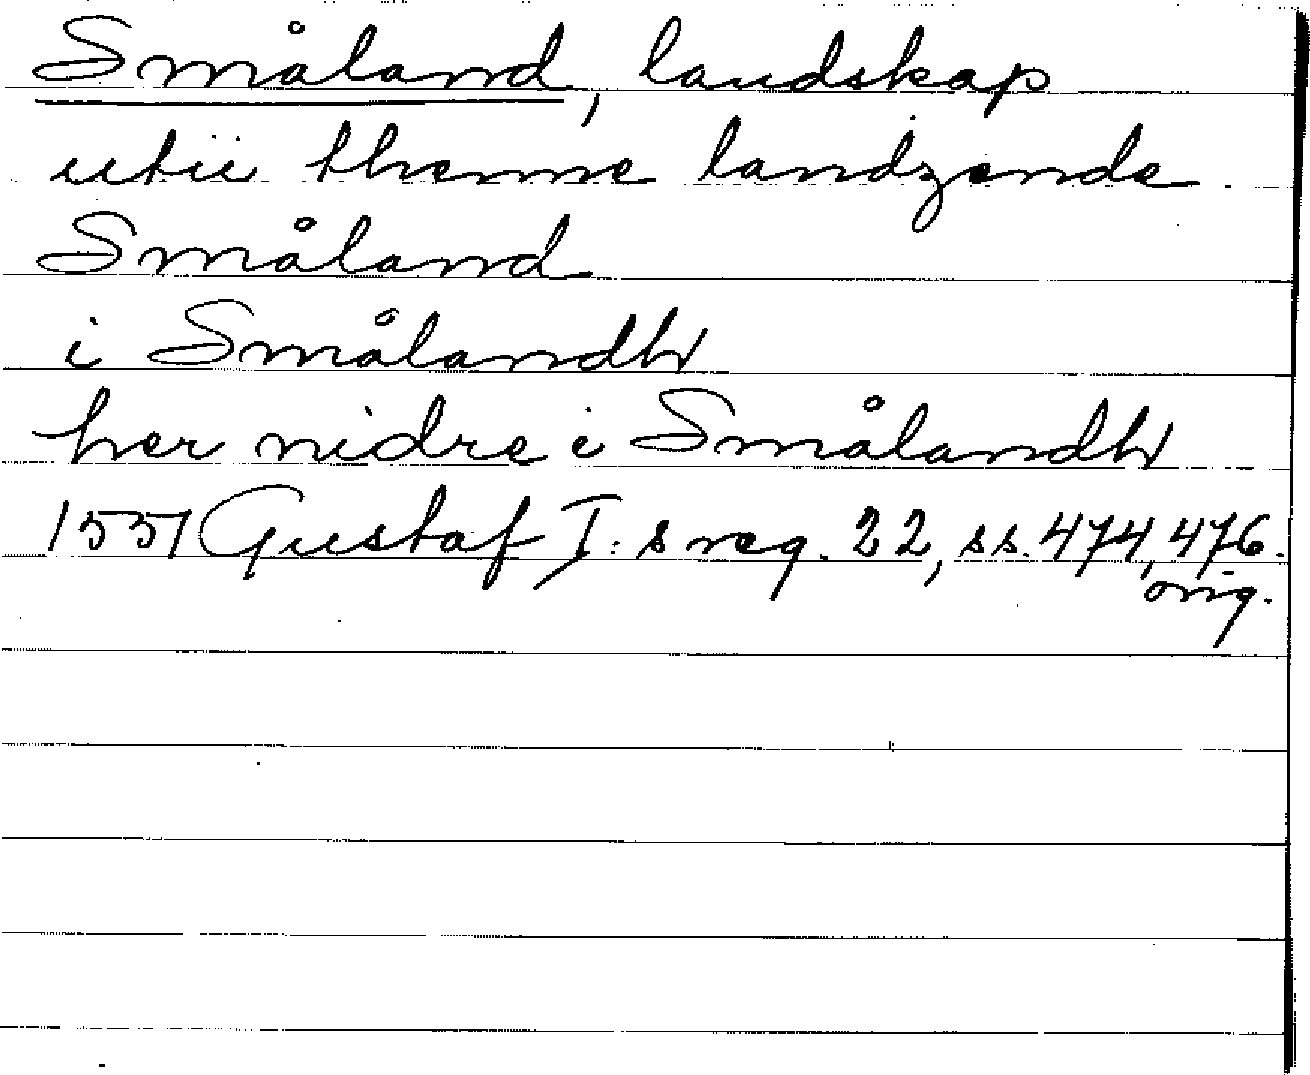 Småland, landskap
utii thenne landzende
Småland
i Smålandh
her nidre i Smålandh
1551 Gustaf I:s reg. 22, ss. 474, 476.
orig.